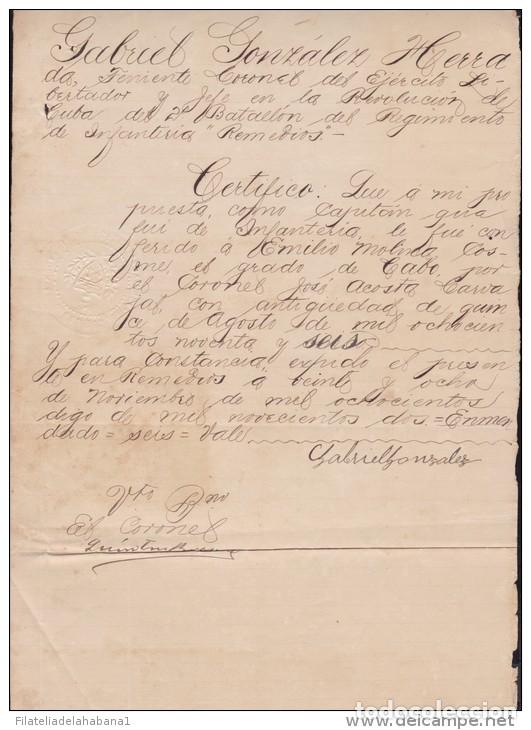 Gabriel González Herra
da, Teniente Coronel del Ejército Li-
bertador y Jefe en la Revolución de
Cuba del 2º Batallón del Regimiento
de Infantería "Remedios".-
Certifico: Que á mi pro
puesta, como Capitán que
fuí de Infantería, le fué con
ferido á Emilio Molina Cos-
me, el grado de Cabo, por
el Coronel José Acosta Carva
jal, con antigüedad de quin
ce de Agosto de mil ochocien
tos noventa y seis
Y para constancia, expido el presen
te en Remedios á veinte y ocho
de Noviembre de mil ochocientos
digo de mil novecientos dos.=Enmen
dado=seis=Vale
Gabriel Gonzalez
Vto Bno
El Coronel
Filateliadelahabana1
todocoleccion.net